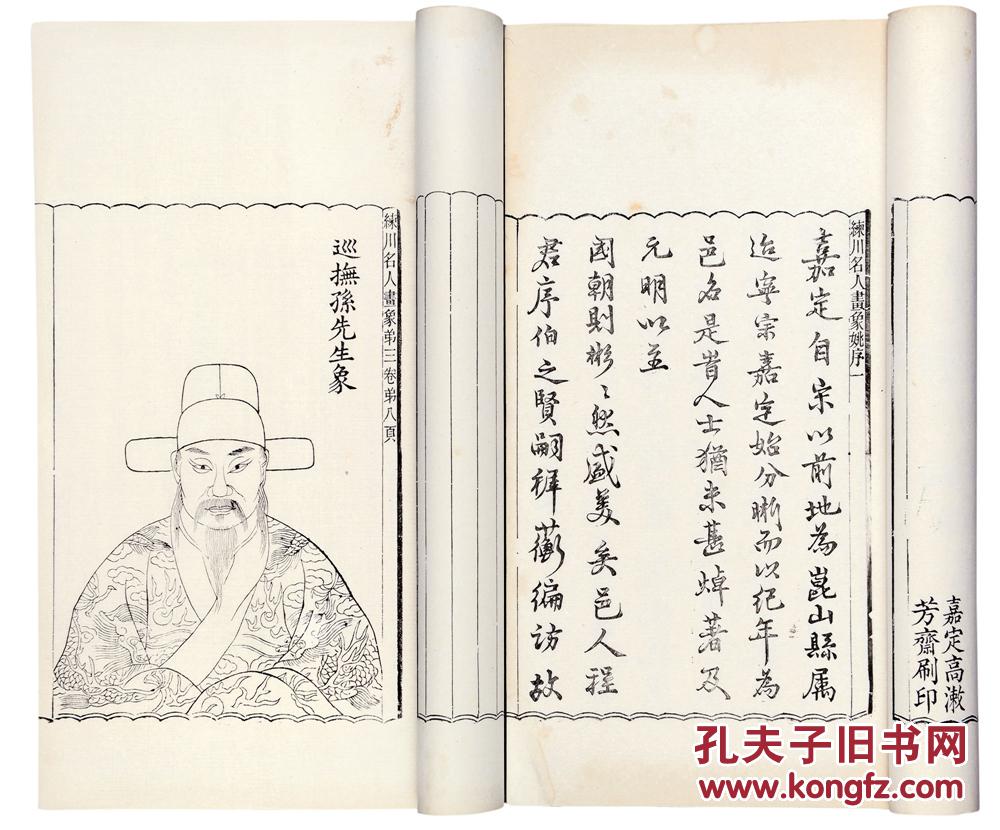 嘉定高漱
芳齋刷印
練川名人畫象姚序一
嘉定自宋以前地為崑山縣属
迨寧宗嘉定始分晰而以紀年為
邑名是昔人士猶未甚焯著及
元明以至
國朝則彬〻然盛美矣邑人程
君序伯之賢嗣稺蘅編訪故
練川名人畫象弟三卷弟八頁
巡撫孫先生象
孔夫子旧书网
www.kongfz.com